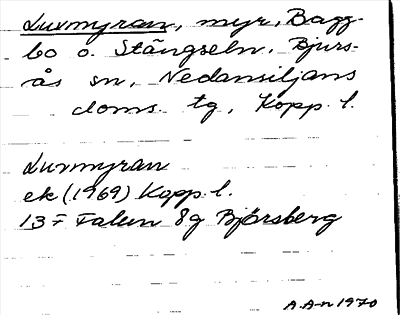 Luvmyran, myr, Bagg-
bo o. Stängseln. Bjurs-
ås sn, Nedansiljans
doms. tg, Kopp. l.
Luvmyran
ek (1969) Kopp. l.
13 F Falun 8g Björsberg
A.A-n 1970